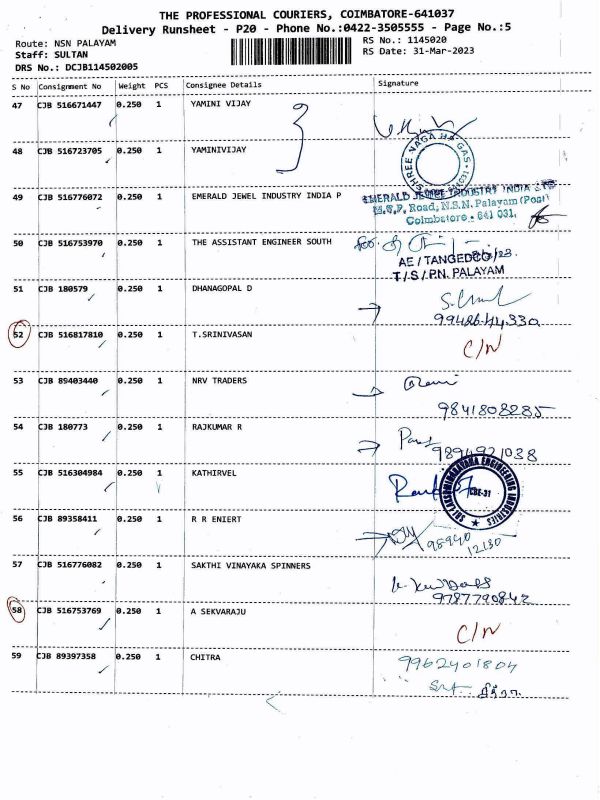 THE PROFESSIONAL COURIERS, COIMBATORE-641037
Delivery Runsheet - P20 - Phone No.:0422-3505555 - Page No.:5
Route: NSN PALAYAM
RS No.: 1145020
Staff: SULTAN
RS Date: 31-Mar-2023
DRS No.: DCJB114502005
S No Consignment No Weight PCS Consignee Details Signature
47 CJB 516671447 0.250 1 YAMINI VIJAY
48 CJB 516723705 0.250 1 YAMINIVIJAY
SHREE NAGA HP GAS
49 CJB 516776072 0.250 1 EMERALD JEWEL INDUSTRY INDIA P
EMERALD JEWEL INDUSTRY INDIA LTD
M.S.P. Road, N.S.N. Palayam (Post)
Coimbatore - 641 031.
50 CJB 516753970 0.250 1 THE ASSISTANT ENGINEER SOUTH
AE / TANGEDCO
T / S / PN. PALAYAM
51 CJB 180579 0.250 1 DHANAGOPAL D
99426 44330
52 CJB 516817810 0.250 1 T.SRINIVASAN
C/N
53 CJB 89403440 0.250 1 NRV TRADERS
9841808285
54 CJB 180773 0.250 1 RAJKUMAR R
9894921038
55 CJB 516304984 0.250 1 KATHIRVEL
SRI LAKSHMINARAYANA ENGINEERING INDUSTRIES
CBE-31
56 CJB 89358411 0.250 1 R R ENIERT
98940
12130
57 CJB 516776082 0.250 1 SAKTHI VINAYAKA SPINNERS
9787790842
58 CJB 516753769 0.250 1 A SEKVARAJU
C/N
59 CJB 89397358 0.250 1 CHITRA
9962401804